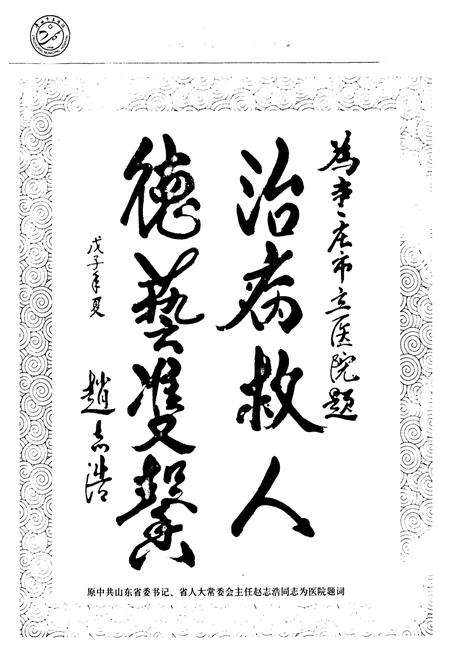 為枣庄市立医院题
治病救人
德藝雙馨
戊子年夏
趙志浩
原中共山东省委书记、省人大常委会主任赵志浩同志为医院题词